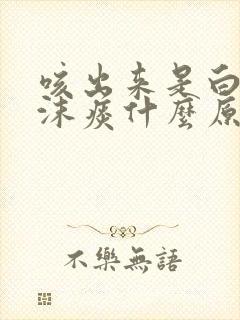 咳出来是白
沫痰什麼原
不樂無語